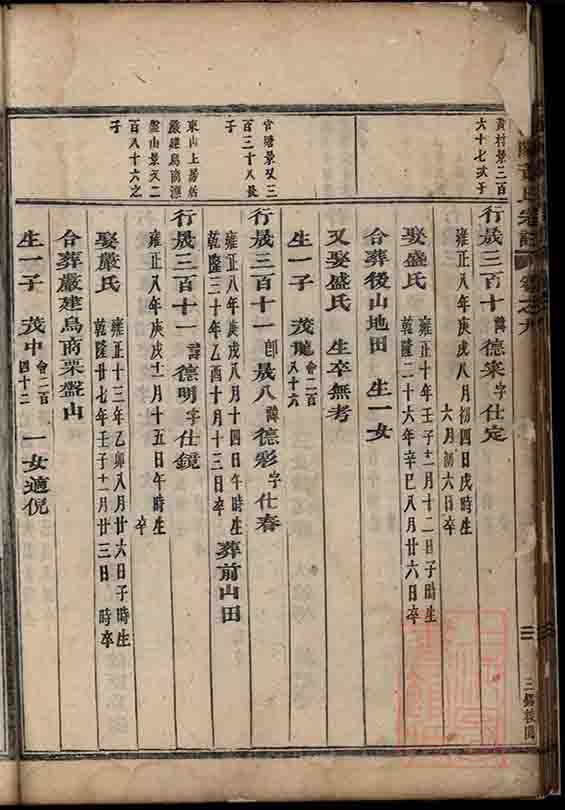 黃村景三百
六十七次子
行晟三百十 諱德寀字仕定
雍正八年庚戌八月初四日戌時生
六月初六日卒
娶盛氏 雍正十年壬子十一月十二日子時生
乾隆二十六年辛巳八月廿六日卒
合葬後山地田 生一女
又娶盛氏 生卒無考
生一子 茂龍 會二百
八十六
官塘景又三
百三十八長
子
行晟三百十一 卽晟八 諱德彩字仕春
雍正八年庚戌八月十四日午時生
乾隆三十年乙酉十月十三日卒 葬前山田
東山上居居
嚴建烏商源
盤山景又二
百八十六之
子
行晟三百十一 諱德明字仕鏡
雍正八年庚戌十一月十五日午時生
卒
娶嚴氏 雍正十三年乙卯八月廿六日子時生
乾隆廿七年壬子十一月廿三日 時卒
合葬嚴建烏商栗盤山
生一子 茂中 會二百
四十二 一女適倪
氏宗譜 卷之九
三